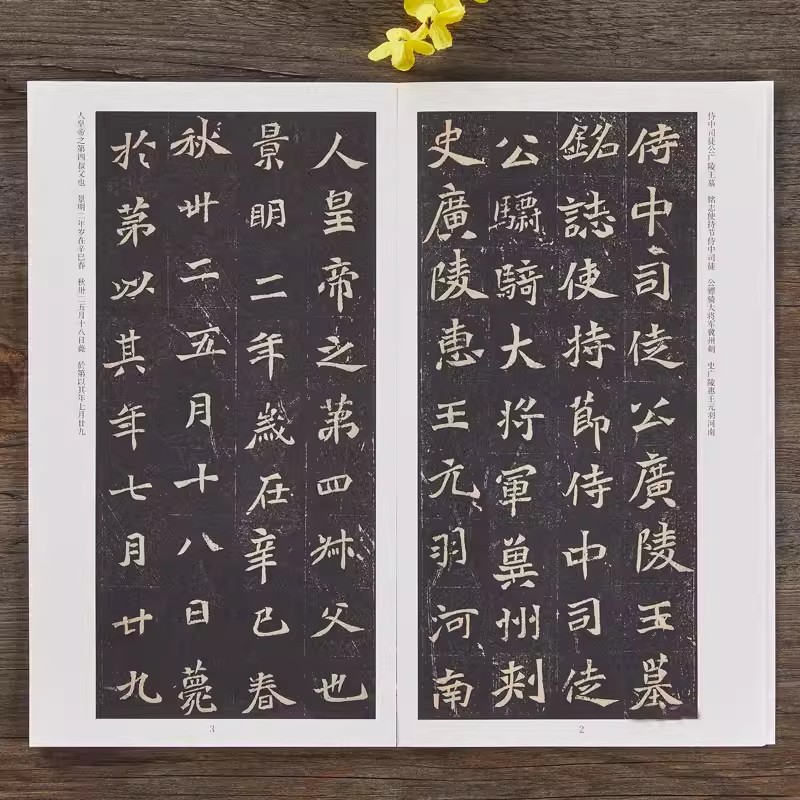 侍中司徒公广陵王墓 铭志使持节侍中司徒 公骠骑大将军冀州刺 史广陵惠王元羽河南
侍中司徒公廣陵王墓
銘誌使持節侍中司徒
公驃騎大將軍冀州刺
史廣陵惠王元羽河南
2
人皇帝之第四叔父也
景明二年歲在辛巳春
秋卅二五月十八日薨
於第以其年七月廿九
人皇帝之第四叔父也 景明二年岁在辛巳春 秋卅二五月十八日薨 於第以其年七月廿九
3